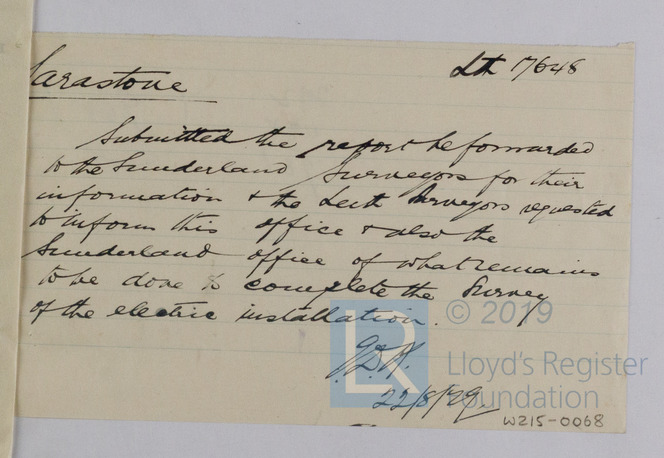 Lth 17648
Sarastone
Submitted the report be forwarded
to the Sunderland Surveyors for their
information & the Leith Surveyors requested
to inform this office & also the
Sunderland office of what remains
to be done to complete the Survey
of the electric installation.
22/8/29
© 2019
LR
Lloyd's Register
Foundation
W215-0068